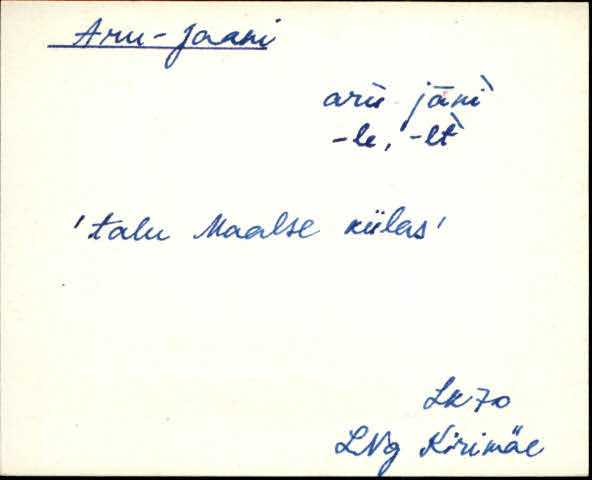 Aru-Jaani
aru jāni`
-le, -lt`
'talu Maalse külas'
LK 70
LNg Kirimäe